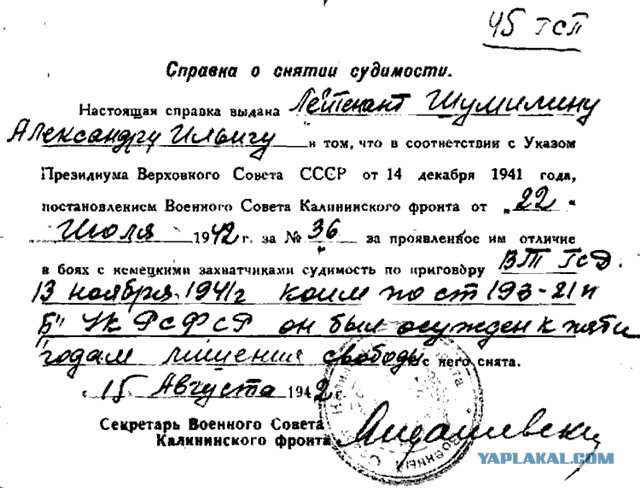 45 гсп
Справка о снятии судимости.
Настоящая справка выдана Лейтенант Шумилину
Александру Ильичу в том, что в соответствии с Указом
Президиума Верховного Совета СССР от 14 декабря 1941 года,
постановлением Военного Совета Калининского фронта от „22"
Июля 1942 г. за № 36 за проявленное им отличие
в боях с немецкими захватчиками судимость по приговору ВТ
13 ноября 1941г коим по ст 193-21 п
Б" УК РСФСР он был осужден к пяти
годам лишения свободы с него снята.
„15 Августа 1942г.
Секретарь Военного Совета
Калининского фронта
YAPLAKAL.COM